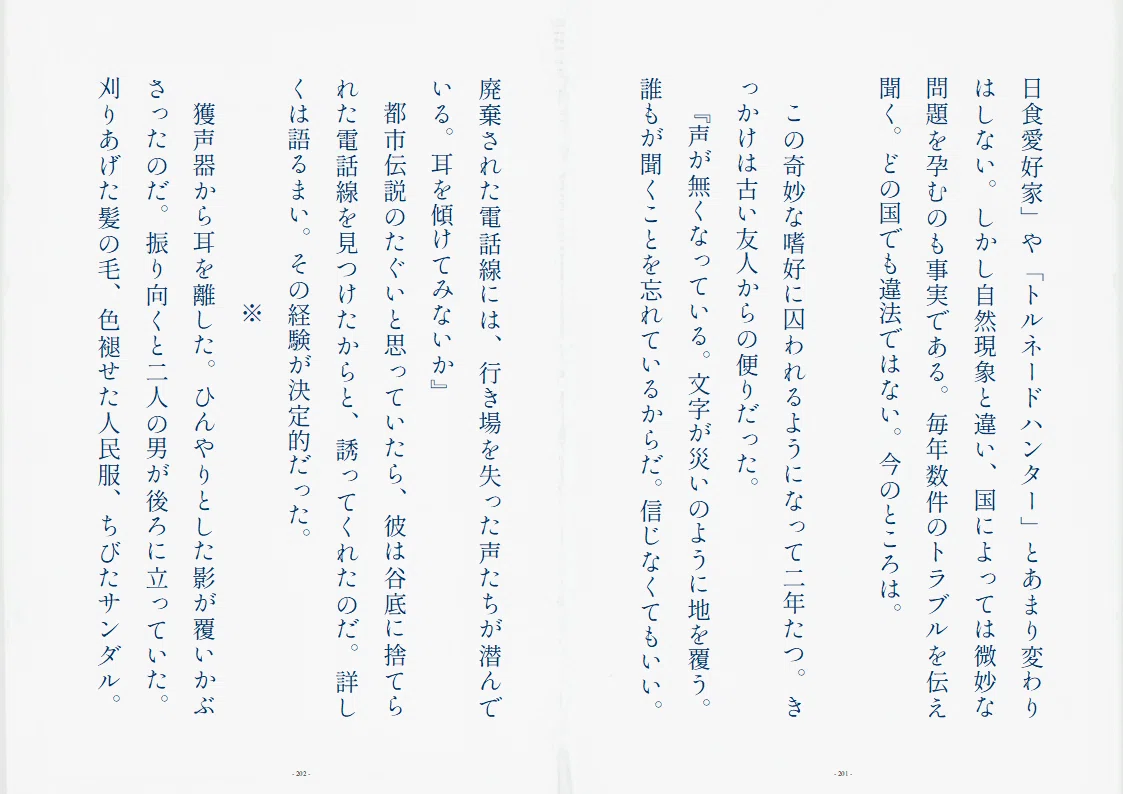 日食愛好家」や「トルネードハンター」とあまり変わり
はしない。しかし自然現象と違い、国によっては微妙な
問題を孕むのも事実である。毎年数件のトラブルを伝え
聞く。どの国でも違法ではない。今のところは。
この奇妙な嗜好に囚われるようになって二年たつ。き
っかけは古い友人からの便りだった。
『声が無くなっている。文字が災いのように地を覆う。
誰もが聞くことを忘れているからだ。信じなくてもいい。
- 201 -
廃棄された電話線には、行き場を失った声たちが潜んで
いる。耳を傾けてみないか』
都市伝説のたぐいと思っていたら、彼は谷底に捨てら
れた電話線を見つけたからと、誘ってくれたのだ。詳し
くは語るまい。その経験が決定的だった。
※
獲声器から耳を離した。ひんやりとした影が覆いかぶ
さったのだ。振り向くと二人の男が後ろに立っていた。
刈りあげた髪の毛、色褪せた人民服、ちびたサンダル。
- 202 -